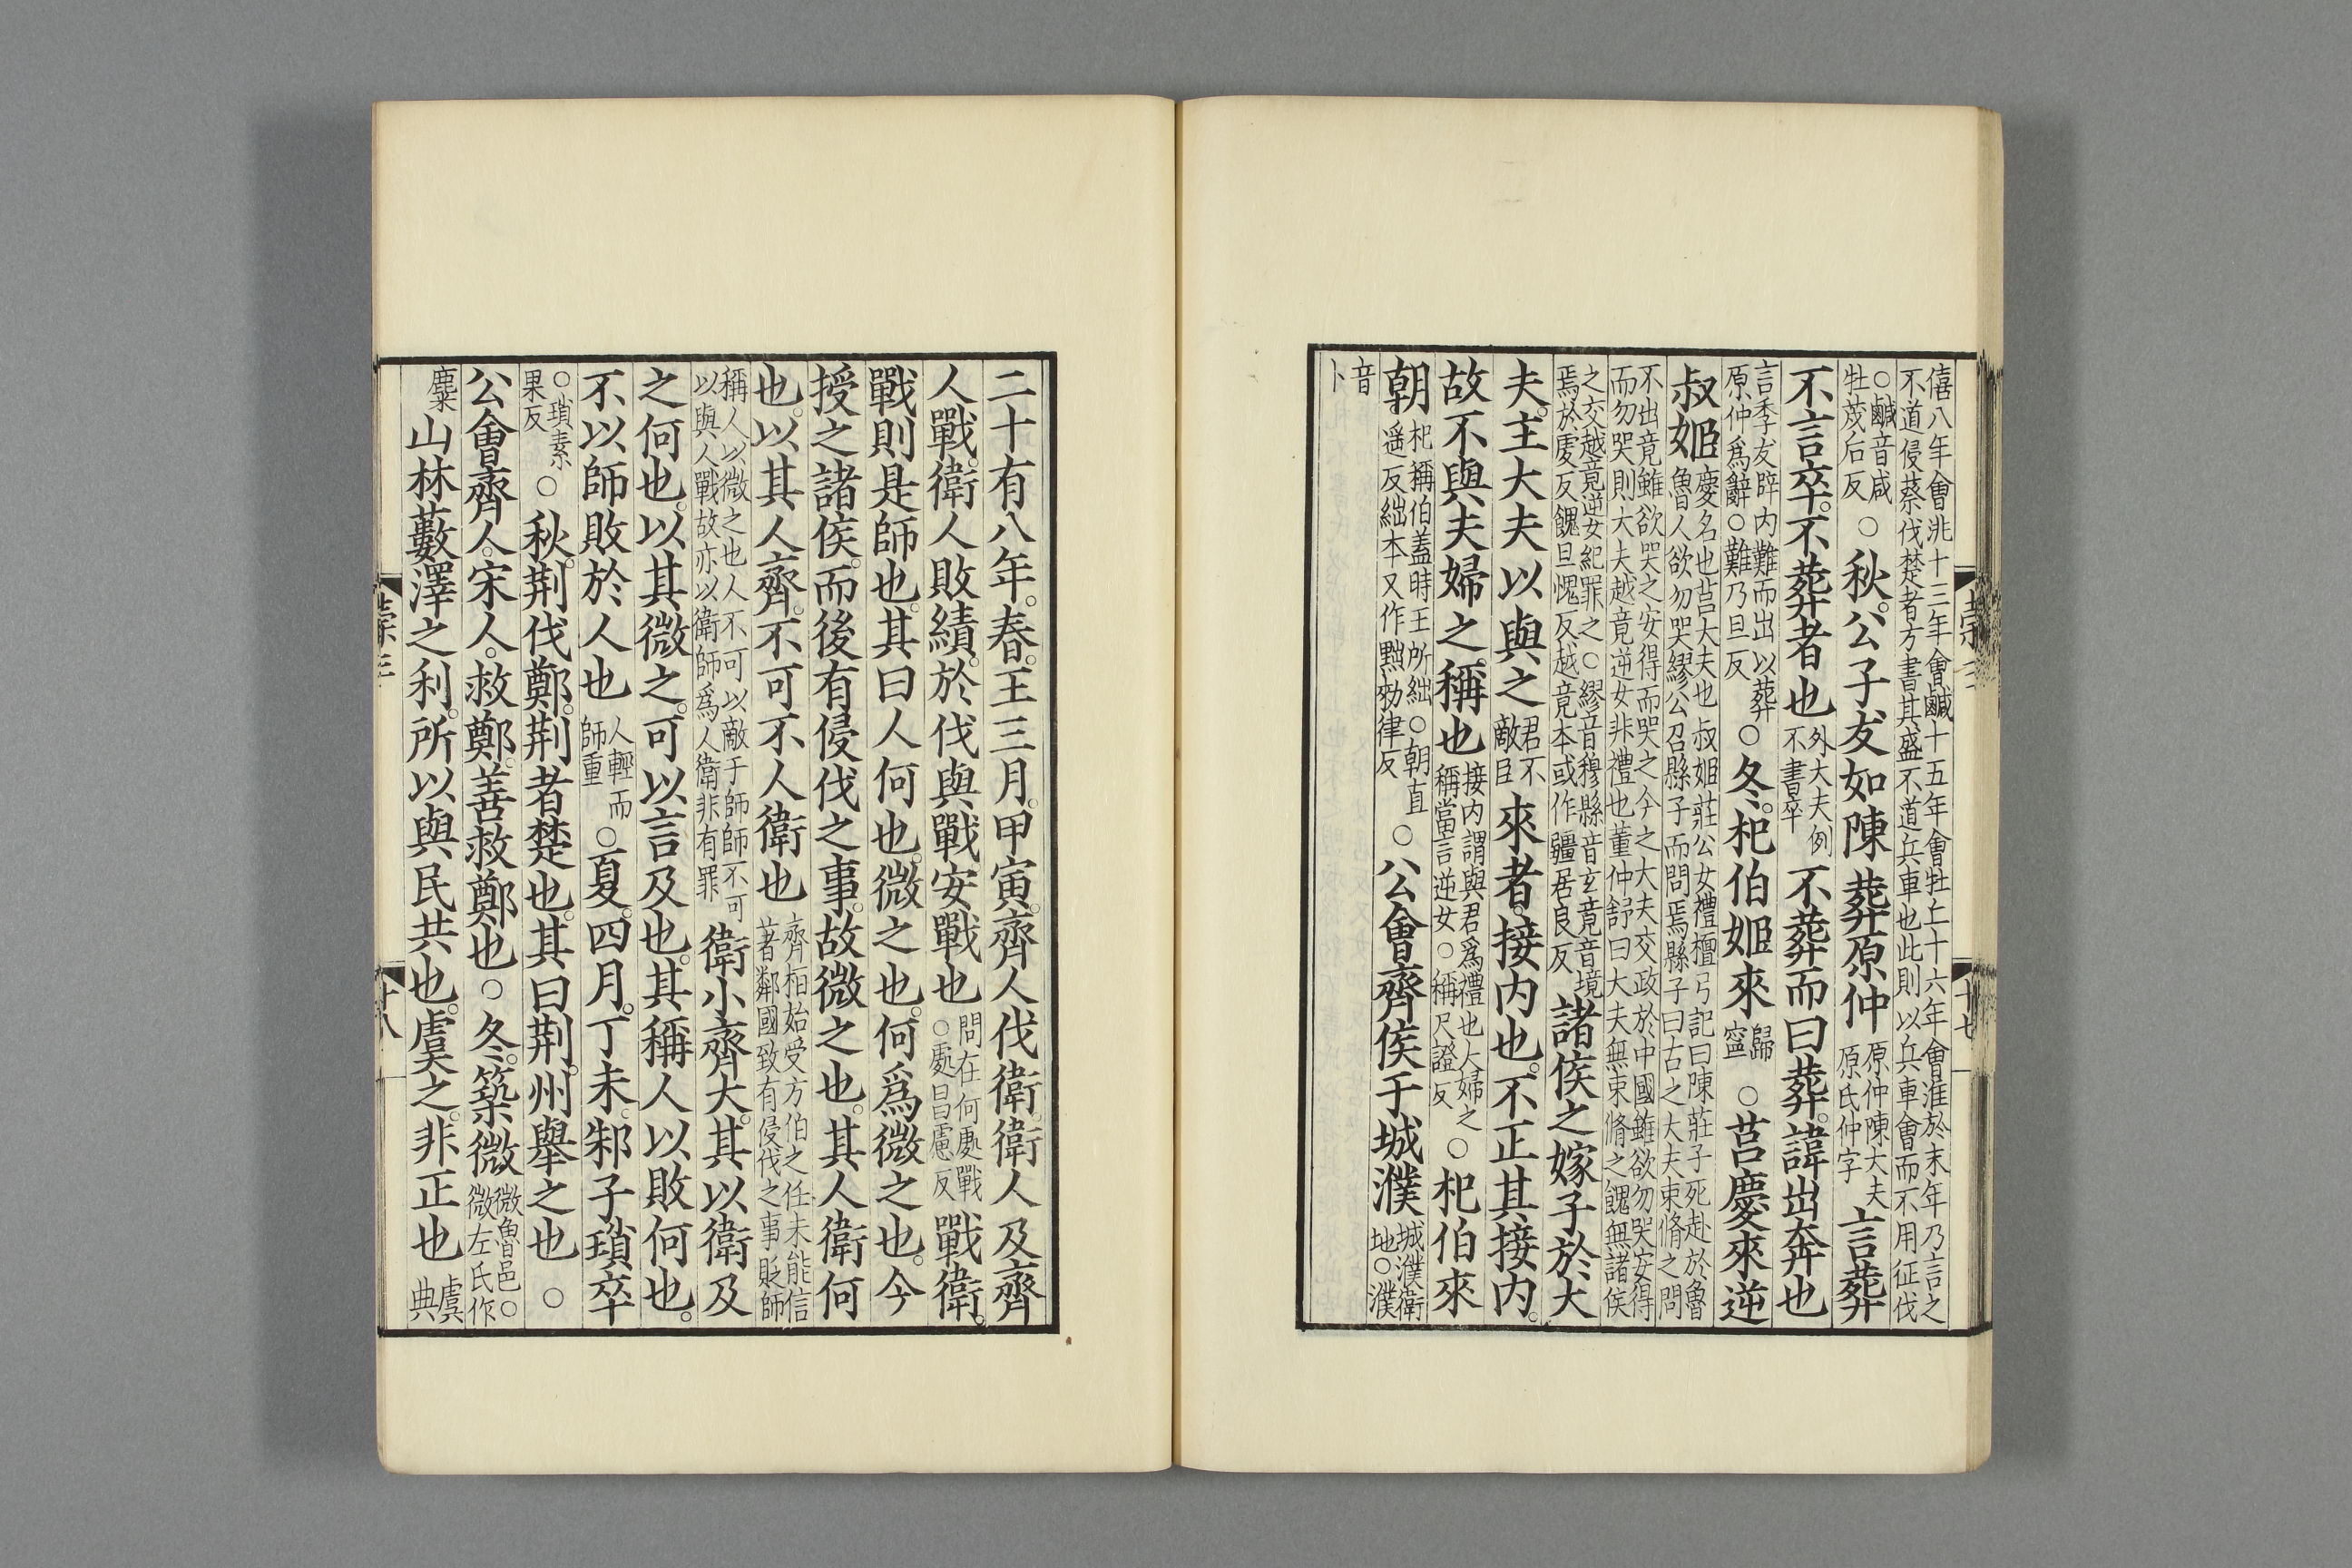 僖八年會洮十三年會鹹十五年會牡丘十六年會淮於末年乃言之
不道侵蔡伐楚者方書其盛不道兵車也此則以兵車會而不用征伐
○鹹音咸
牡茂后反
○秋公子友如陳葬原仲
原仲陳大夫
原氏仲字
言葬
不言卒不葬者也
外大夫例
不書卒
不葬而曰葬諱出奔也
言季友辟内難而出以葬
原仲爲辭○難乃旦反
○冬杞伯姬來
歸
寧
○莒慶來逆
叔姬
慶名也莒大夫也叔姬莊公女禮檀弓記曰陳莊子死赴於魯
魯人欲勿哭繆公召縣子而問焉縣子曰古之大夫束脩之問
不出竟雖欲哭之安得而哭之今之大夫交政於中國雖欲勿哭安得
而勿哭則大夫越竟逆女非禮也董仲舒曰大夫無束脩之餽無諸侯
之交越竟逆女紀罪之○繆音穆縣音玄竟音境
焉於虔反餽旦愧反越竟本或作疆居良反
諸侯之嫁子於大
夫主大夫以與之
君不
敵臣
來者接内也不正其接内
故不與夫婦之稱也
接内謂與君爲禮也大婦之
稱當言逆女○稱尺證反
○杞伯來
朝
杞稱伯蓋時王所絀○朝直
遥反絀本又作黜勑律反
○公會齊侯于城濮
城濮衛
地○濮
音
卜
二十有八年春王三月甲寅齊人伐衛衛人及齊
人戰衛人敗績於伐與戰安戰也
問在何處戰
○處昌慮反
戰衛
戰則是師也其曰人何也微之也何爲微之也今
授之諸侯而後有侵伐之事故微之也其人衛何
也以其人齊不可不人衛也
齊桓始受方伯之任未能信
著鄰國致有侵伐之事貶師
稱人以微之也人不可以敵于師師不可
以與人戰故亦以衛師爲人衛非有罪
衛小齊大其以衛及
之何也以其微之可以言及也其稱人以敗何也
不以師敗於人也
人輕而
師重
○夏四月丁未邾子瑣卒
○瑣素
果反
○秋荆伐鄭荆者楚也其曰荆州舉之也○
公會齊人宋人救鄭善救鄭也○冬築微
微魯邑○
微左氏作
麋
山林藪澤之利所以與民共也虞之非正也
虞
典
十七
十八